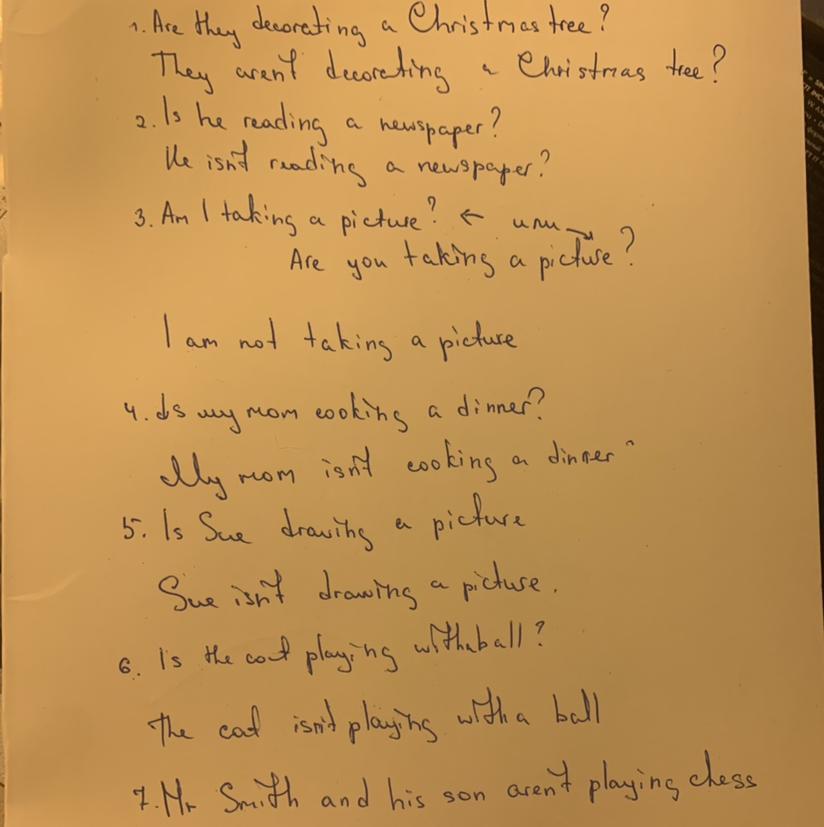 1. Are they decorating a Christmas tree?
They aren't decorating a Christmas tree?
2. Is he reading a newspaper?
He isn't reading a newspaper?
3. Am I taking a picture? ← или →
Are you taking a picture?
I am not taking a picture
4. Is my mom cooking a dinner?
My mom isn't cooking a dinner
5. Is Sue drawing a picture
Sue isn't drawing a picture.
6. Is the cat playing with a ball?
The cat isn't playing with a ball
7. Mr Smith and his son aren't playing chess